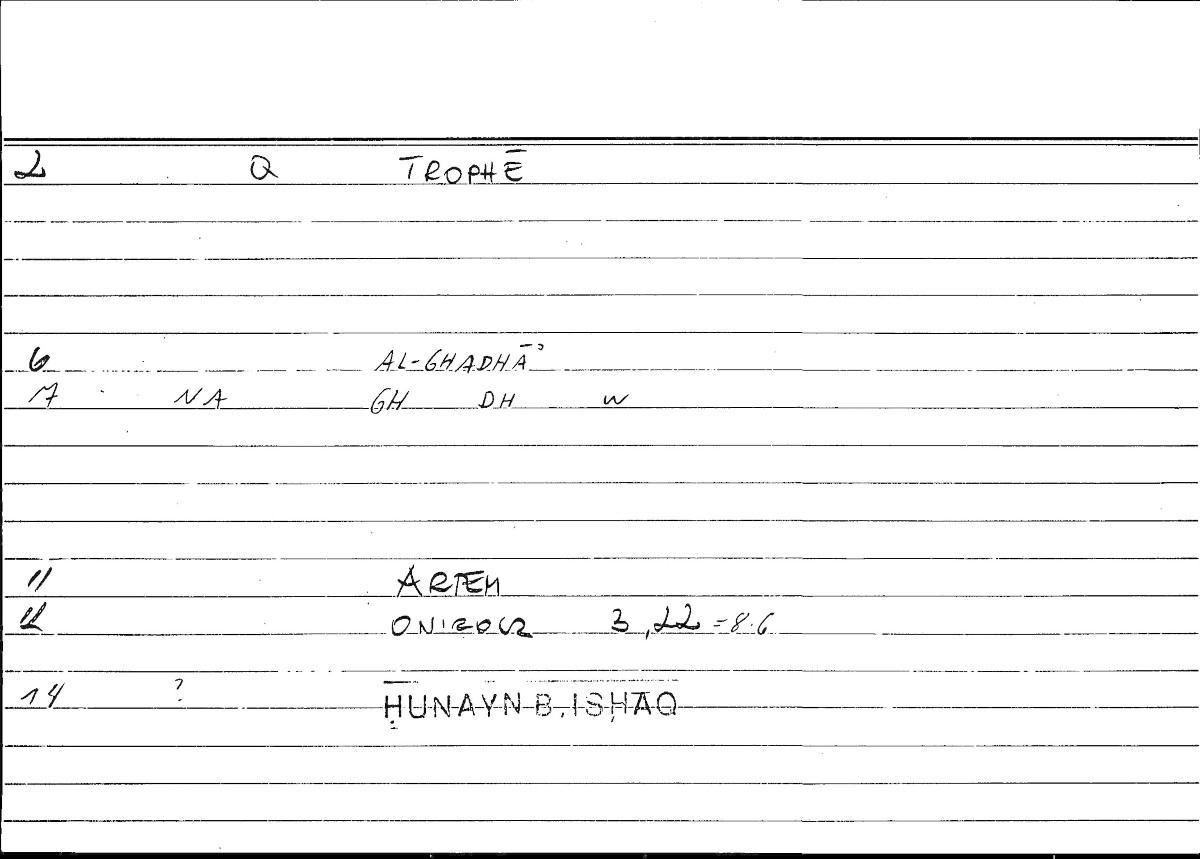 2 Q TROPHĒ
6 AL-GHADHĀʾ
7 NA GH DH W
11 ARTEM
12 ONIROCR 3,22=8.6
14 ? ḤUNAYN B. ISḤĀQ